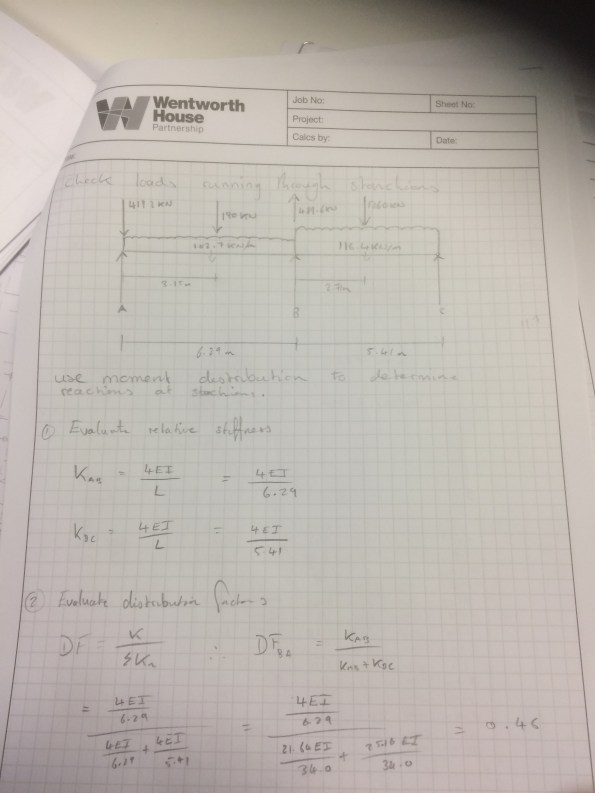 Wentworth
House
Partnership
Job No:
Sheet No:
Project:
Calcs by:
Date:
check loads running through stanchions
419.2 kN
190 kN
A
B
C
6.29m
5.41m
use moment distribution to determine
reactions at stachions.
① Evaluate relative stiffness
K_AB = 4EI/L = 4EI/6.29
K_BC = 4EI/L = 4EI/5.41
② Evaluate distribution factors
DF = K/ΣKn ∴ DF_BA = K_AB/K_AB + K_BC
= 4EI/6.29 / 4EI/6.29 + 4EI/5.41 = 4EI/6.29 / 21.64EI/34.0 + 25.16EI/34.0 = 0.46